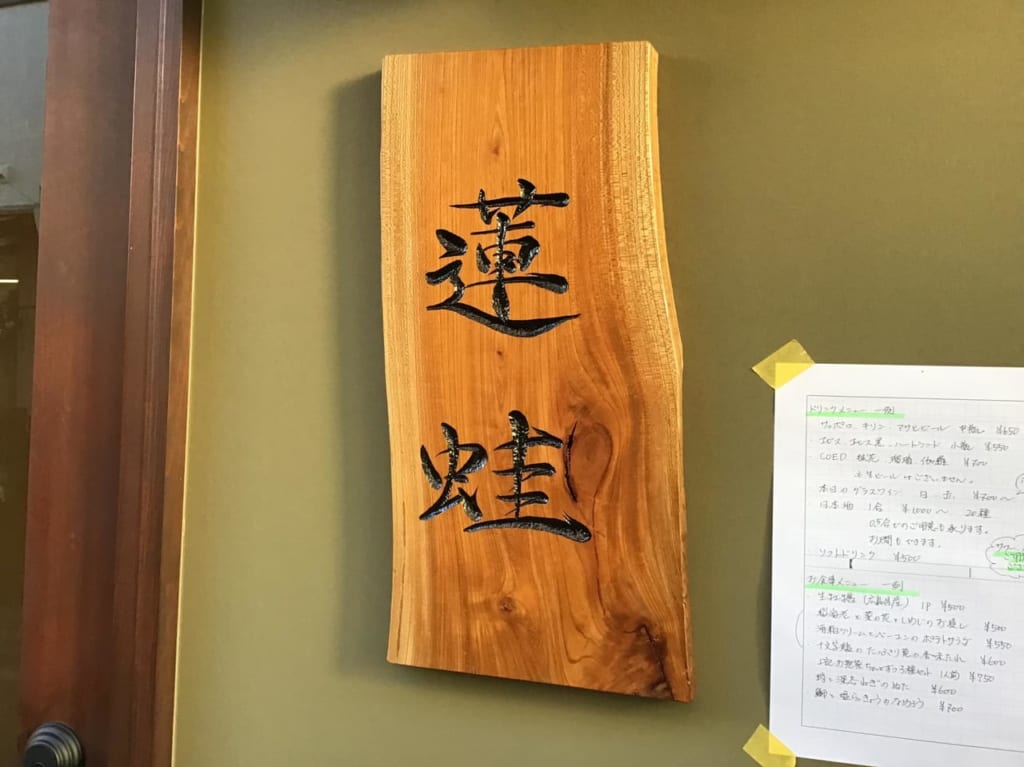 蓮蛙
ドリンクメニュー 一例
サッポロ、キリン、アサヒビール 中瓶 ¥650
・ヱビス、ヱビス黒、ハートランド 小瓶 ¥550
・COED 瑠璃、伽羅 ¥700
※生ビールはございません。
本日のグラスワイン 白・赤 ¥700〜
日本酒 1合 ¥1000〜 20種
0.5合でのご用意も承ります。
お燗もできます。
ソフトドリンク ¥500
お食事メニュー 一例
・生牡蠣(広島県産) 1P ¥500
桜海老と菜の花としめじのお浸し ¥500
酒粕クリームとベーコンのポテトサラダ ¥550
のたっぷり葱の香味だれ ¥600
3種セット 1人前 ¥750
深谷ねぎのぬた ¥600
塩らっきょうのなめろう ¥700